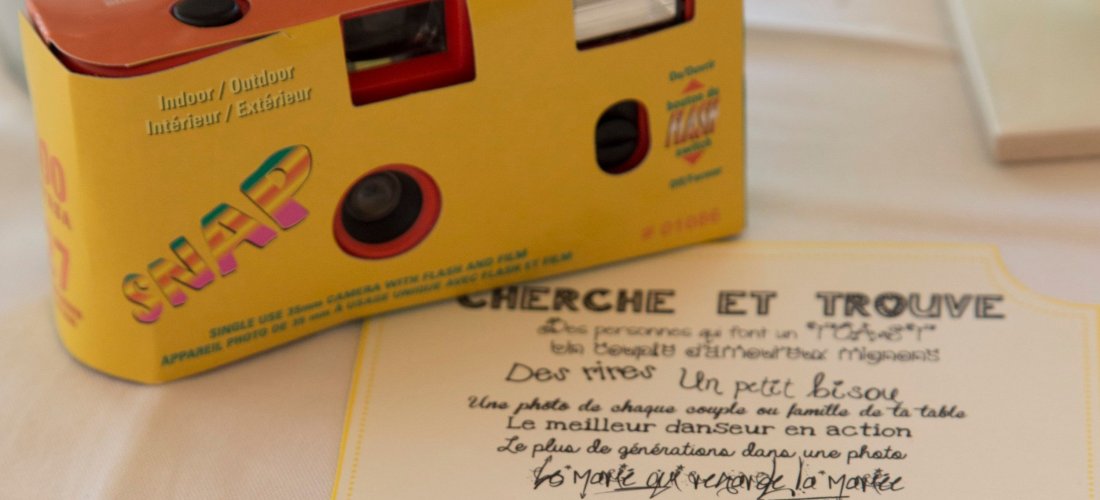 Indoor / Outdoor
Intérieur / Extérieur
SNAP
SINGLE USE 35mm CAMERA WITH FLASH AND FILM
APPAREIL PHOTO DE 35 mm À USAGE UNIQUE AVEC FLASH ET FILM
On/Ouvrir
bouton du
FLASH
switch
Off/Fermer
CHERCHE ET TROUVE
Des personnes qui font un "TOAST"
Un couple d'amoureux mignons
Des rires Un petit bisou
Une photo de chaque couple ou famille de ta table
Le meilleur danseur en action
Le plus de générations dans une photo
Le marié qui regarde la mariée